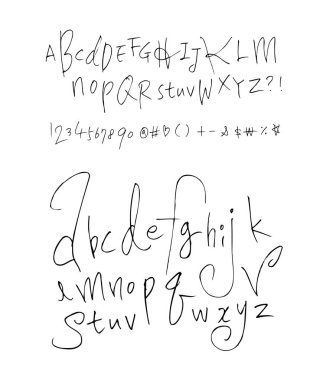 ABCdDEFGHIJKLM
nopQRStuvWXYZ?!
1234567890 @#♡()+-&$₩%☆
abcdefghijk
lmnopqr
stuvwxyz